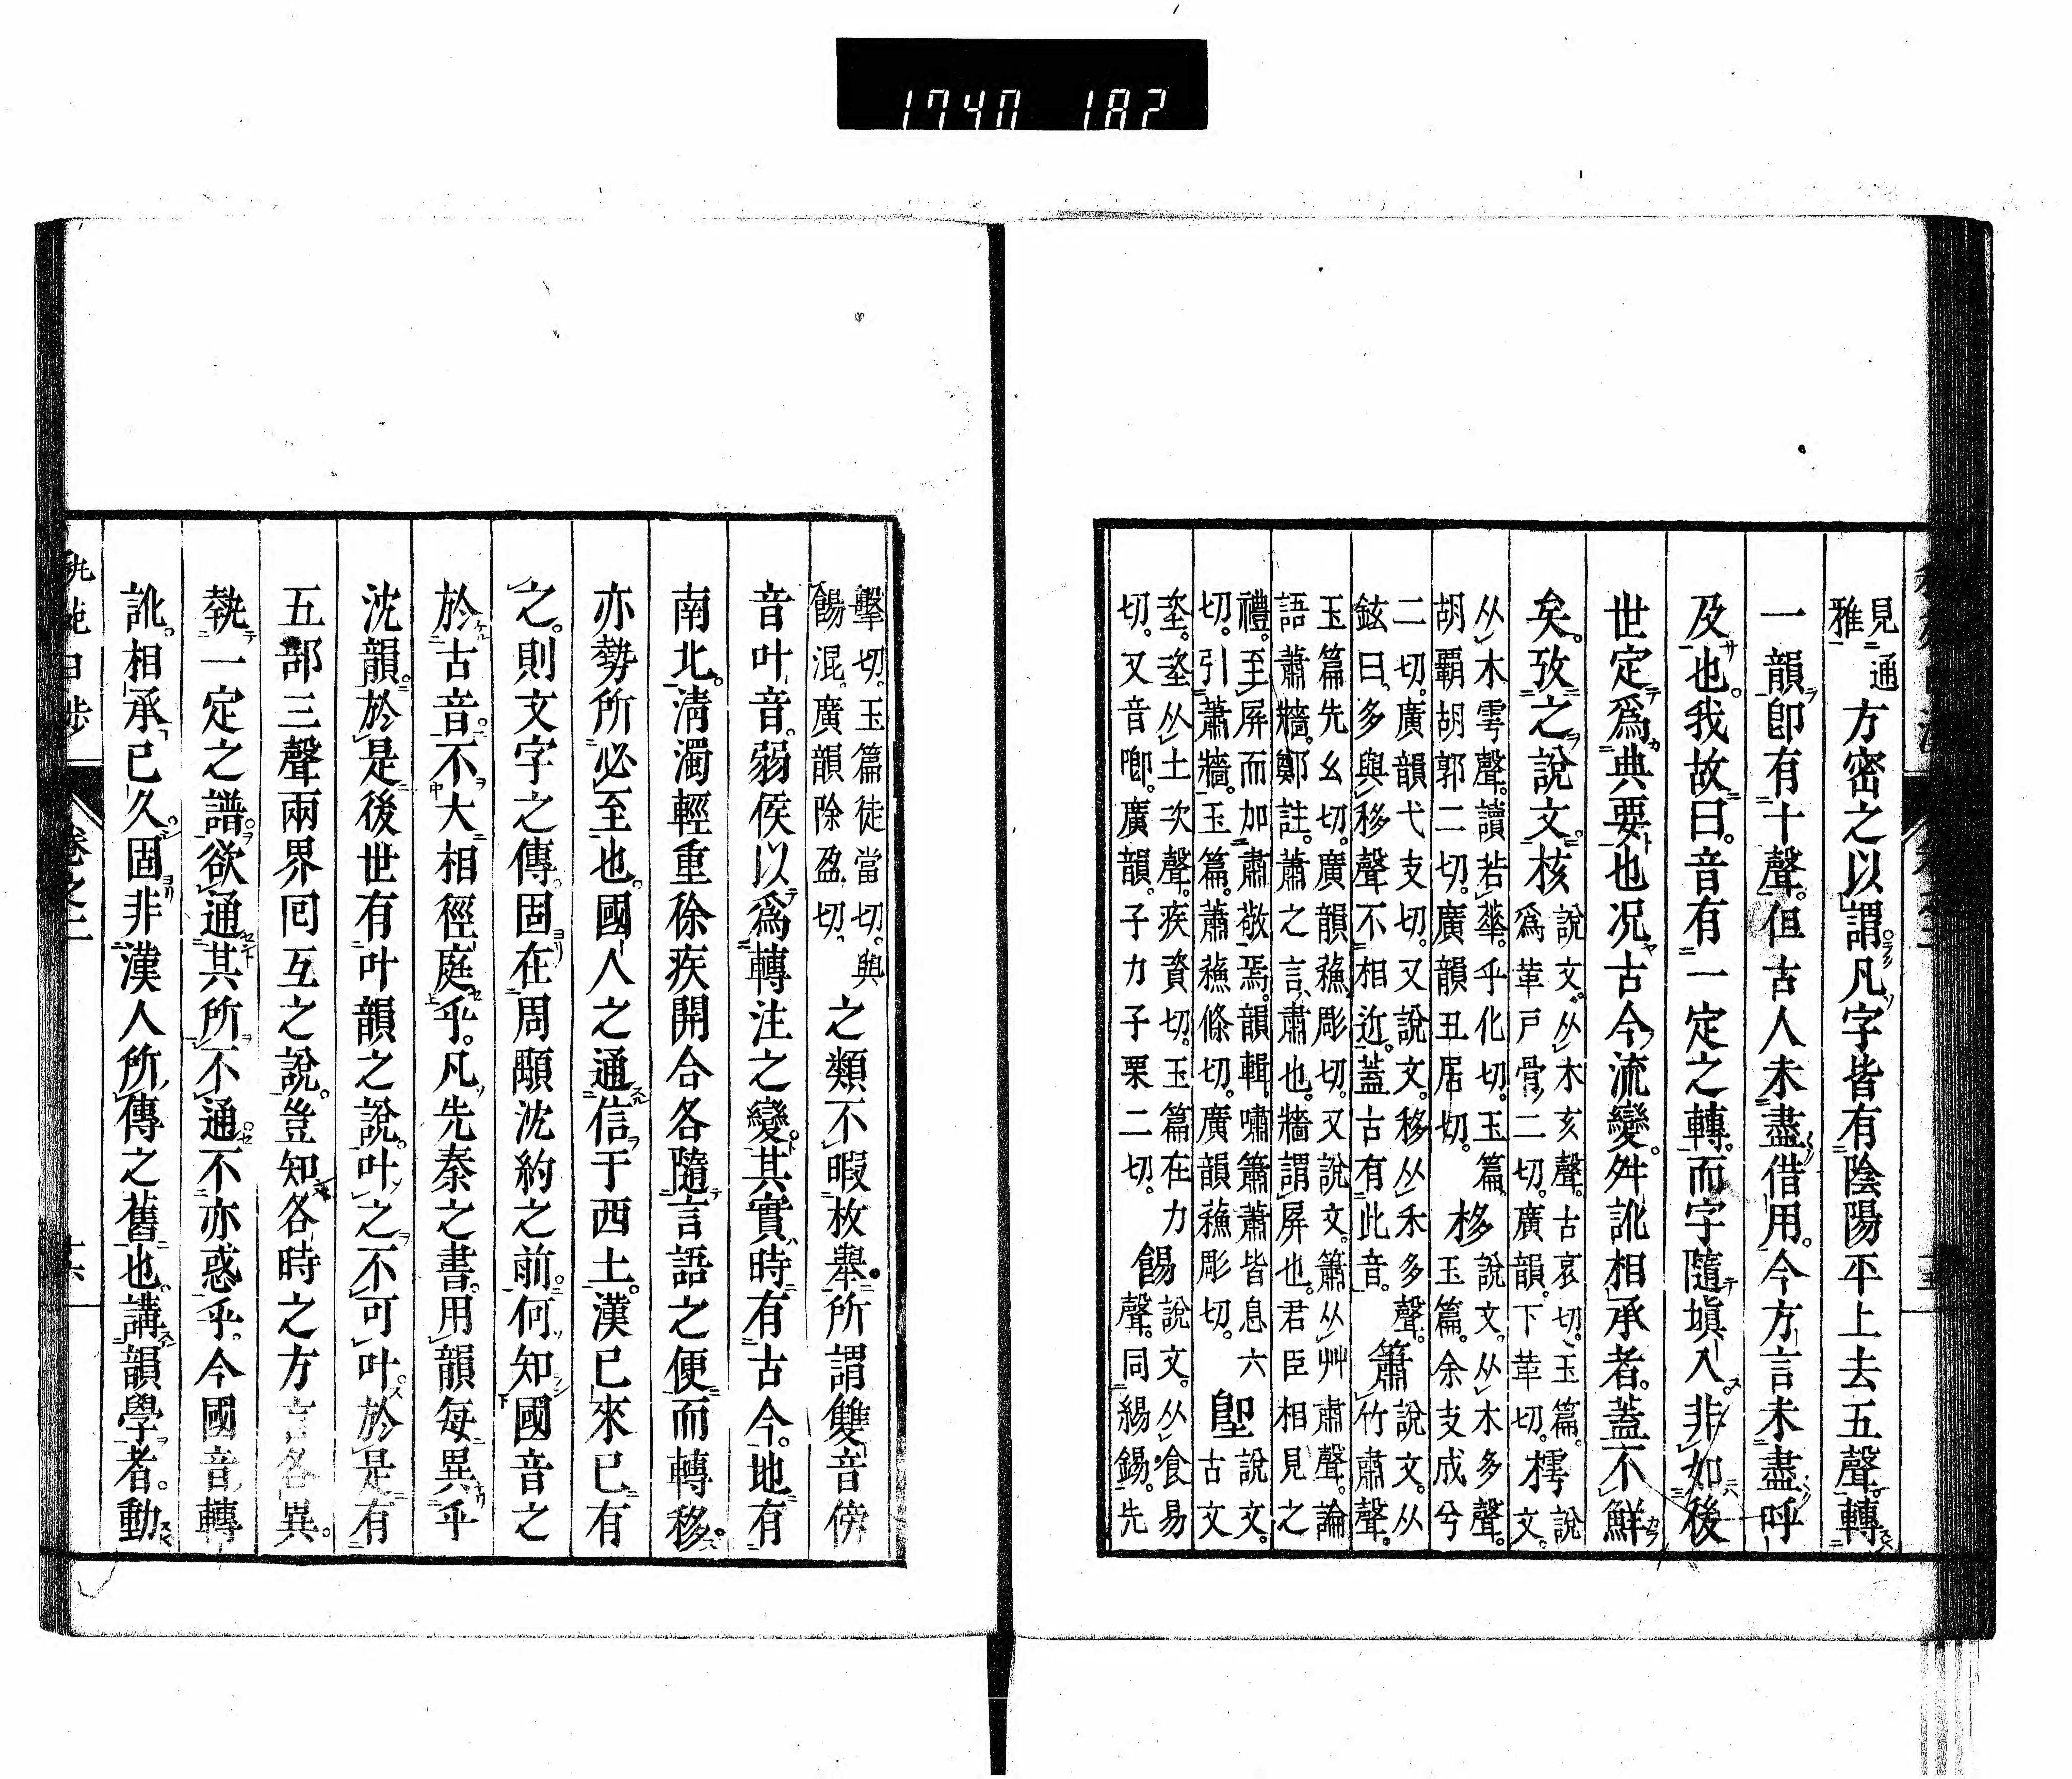 1740 182
見通雅方密之以謂凡字皆有陰陽平上去五聲轉
一韻卽有十聲但古人未盡借用今方言未盡呼
及也我故曰音有一定之轉而字隨塡入非如後
世定爲典要也况古今流變舛訛相承者蓋不鮮
矣攷之說文核說文从木亥聲古哀切玉篇爲革戸骨二切廣韻下革切樗說文
从木雩聲讀若華乎化切玉篇胡覇胡郭二切廣韻丑居切移說文从木多聲玉篇余支成兮
二切廣韻弋支切又說文移从禾多聲鉉曰多與移聲不相近蓋古有此音簫說文从竹肅聲
玉篇先幺切廣韻蘓彫切又說文簫从艸肅聲論語蕭牆鄭註蕭之言肅也牆謂屏也君臣相見之
禮至屏而加肅敬焉韻輯嘯簫蕭皆息六切引蕭牆玉篇蕭蘓條切廣韻蘓彫切堲說文古文
垐垐从土次聲疾資切玉篇在力切又音喞廣韻子力子栗二切餳說文从食易聲同緆錫先
擊切玉篇徒當切與餳混廣韻除盈切之類不暇枚擧所謂雙音傍
音叶音弱侯以爲轉注之變其實時有古今地有
南北淸濁輕重徐疾開合各隨言語之便而轉移
亦勢所必至也國人之通信于西土漢已來已有
之則文字之傳固在周顒沈約之前何知國音之
於古音不大相徑庭乎凡先秦之書用韻每異乎
沈韻於是後世有叶韻之說叶之不可叶於是有
五部三聲兩界囘互之說豈知各時之方言各異
執一定之譜欲通其所不通不亦惑乎今國音轉
訛相承已久固非漢人所傳之舊也講韻學者動
卷之二